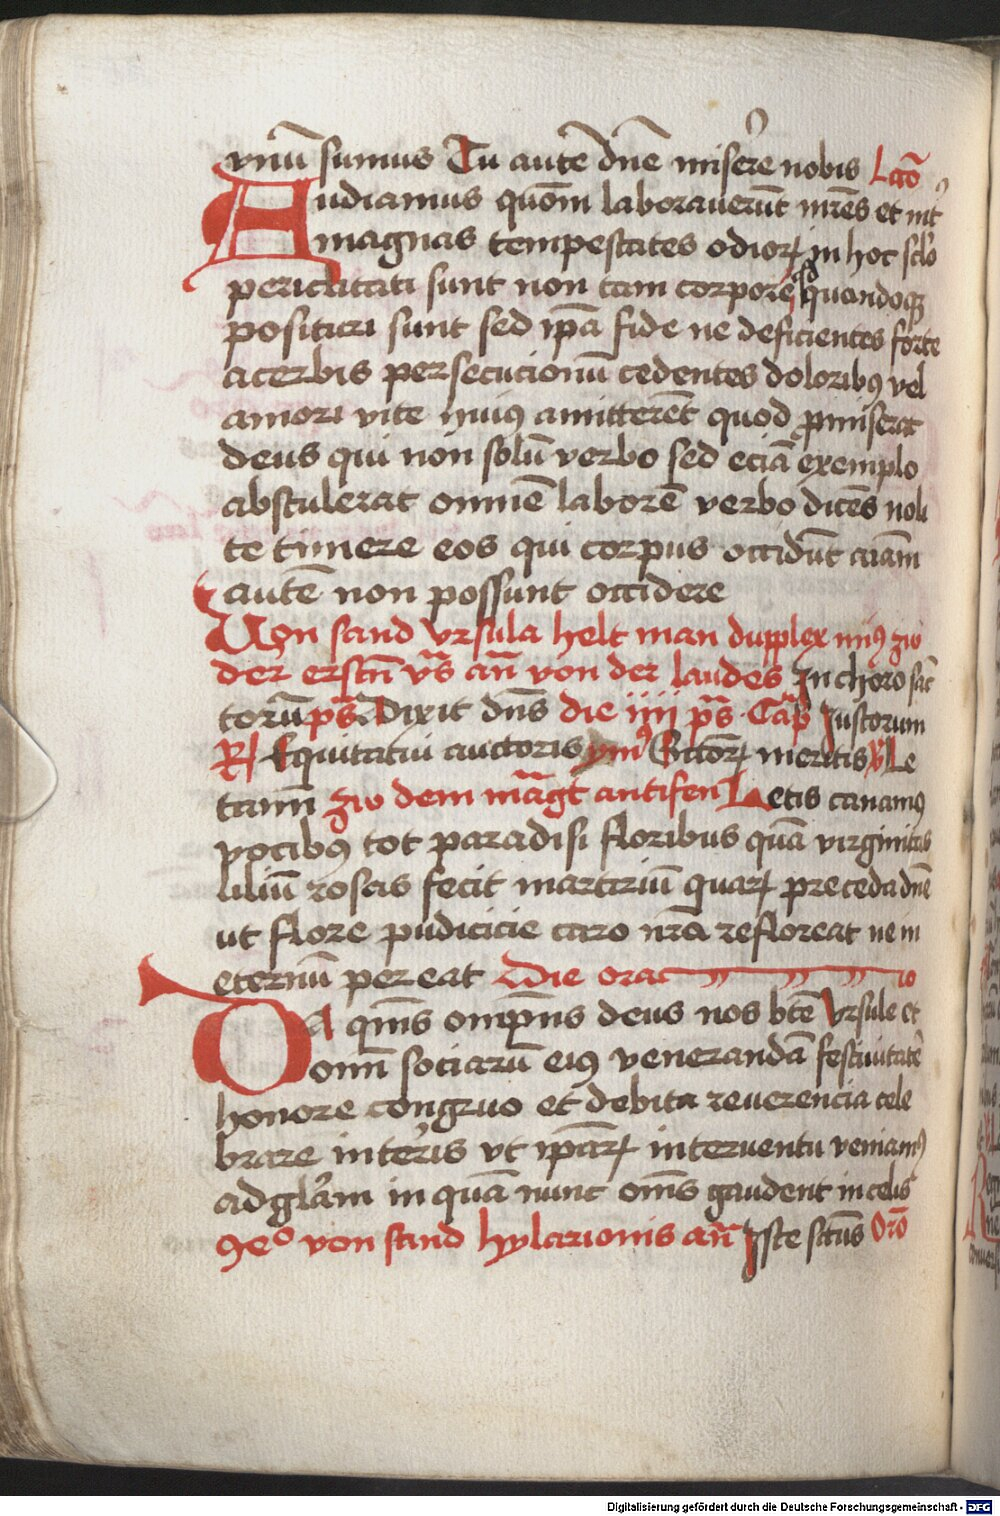 vnū sumus Tu autē dnē miserere nobis Lcō
Audiamus quōm laborauerūt mr̄es et int̄
magnas tempestates odioꝝ in hoc sclo
periclitati sunt non tam corpore quod quandoqꝫ
posituri sunt sed ip̄a fide ne deficientes forte
acerbis persecucionū cedentes doloribꝰ vel
amori vite huiꝰ amitterēt quod ꝓmiserat
deus qui non solū verbo sed eciā exemplo
abstulerat omnē laborē verbo dicēs noli
te timere eos qui corpus occidūt aīam
autē non possunt occidere
Von sand vrsula helt man dupplex zw
der erstn̄ vs̄ an̄ von der laudes In choro sāc
torū ps̄ Dixit dn̄s die iiij ps̄ Cap̄ Iustorum
R Equitatiui auctoris ymꝰ Sctōꝝ meritis V Le
tamī zw dem mag̅t antifen Letis canamꝰ
vocibꝰ tot paradisi floribus quā virginitatis
liliū rosas fecit martiriū quaꝝ prece da dnē
ut flore pudicicie caro nr̄a refloreat ne in
eternū pereat Die oracio
Da qm̄s omp̄ns deus nos btē vrsule et
omī sociarū eiꝰ venerandā festiuitatē
honore congruo et debita reuerencia cele
brare in terris vt ip̄aꝝ interuentu veniamꝰ
ad glām in quā nunc om̄s gaudent in celis
9eo von sand hylarionis an̄ Iste sctūs Orō
Digitalisierung gefördert durch die Deutsche Forschungsgemeinschaft - DFG